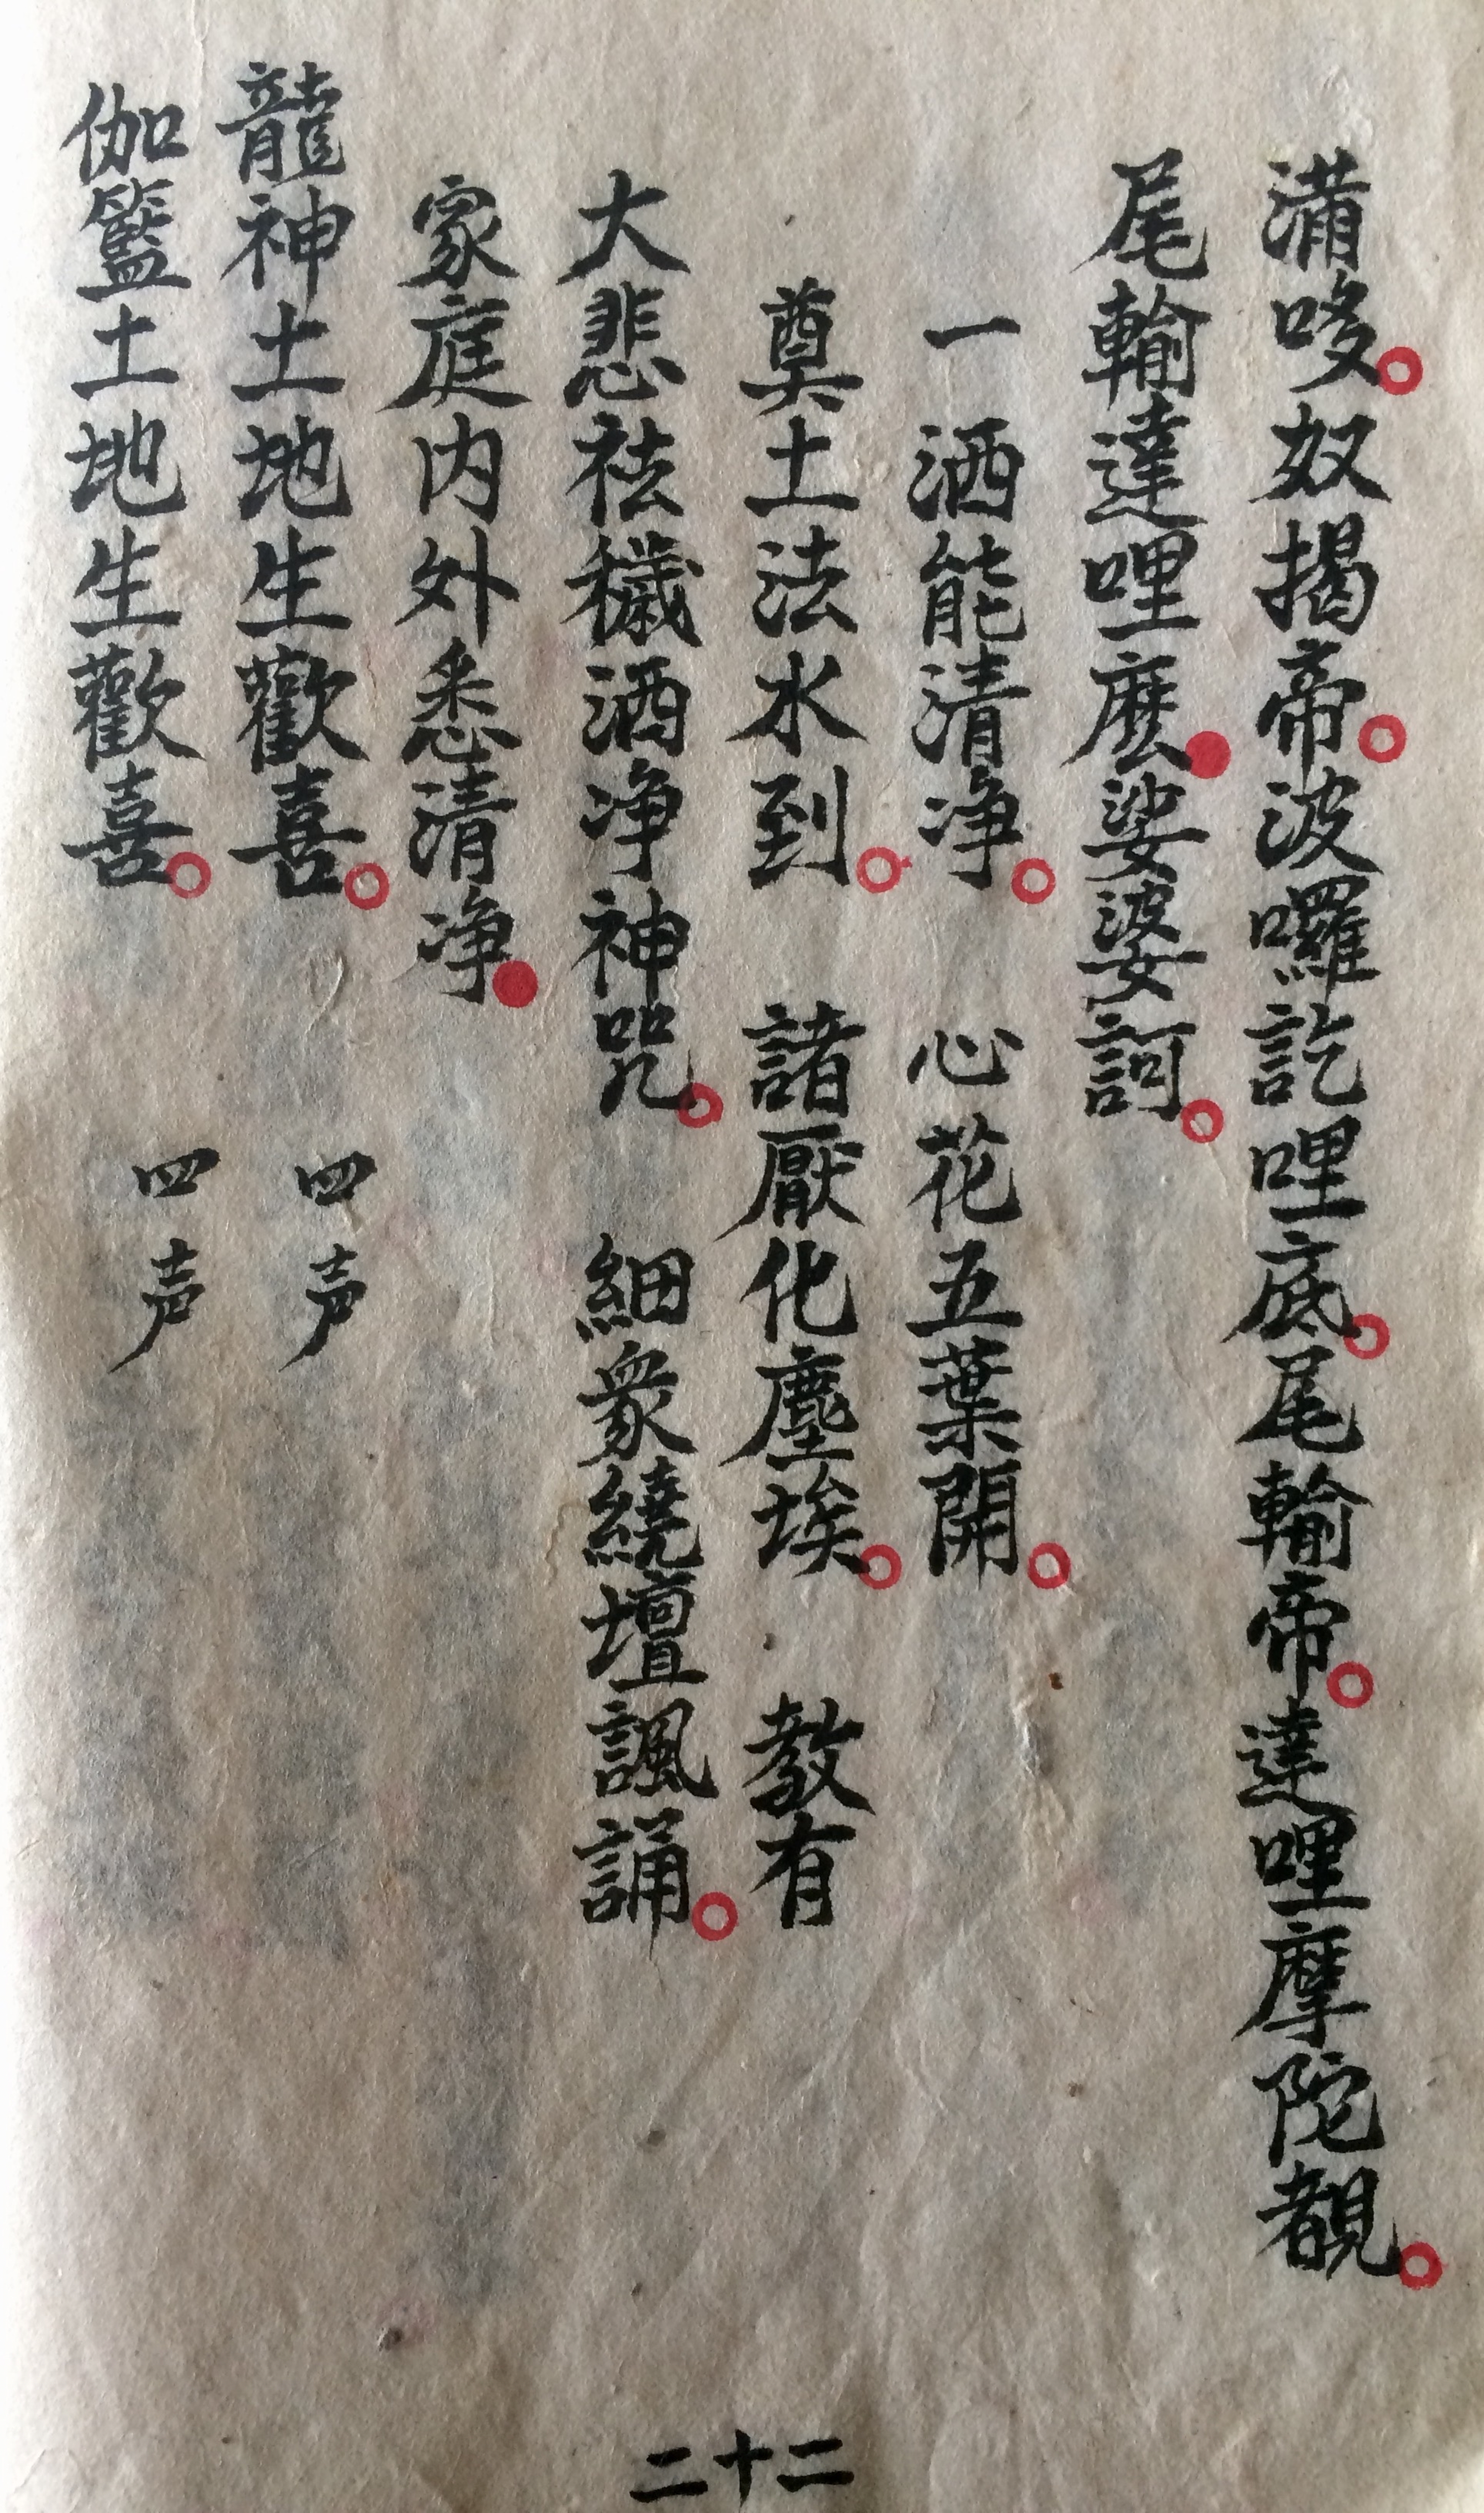 溝哆。奴揭帝。波囉訖哩底。尾輸帝。達哩摩陀覩。
尾輸達哩麽●娑婆訶。
一洒能清净。 心花五葉開。
奠土法水到。 諸厭化塵埃。 教有
大悲祛穢洒净神咒。 細衆繞壇諷誦。
家庭内外悉清净●
龍神土地生歡喜。 四声
伽籃土地生歡喜。 四声
二十二